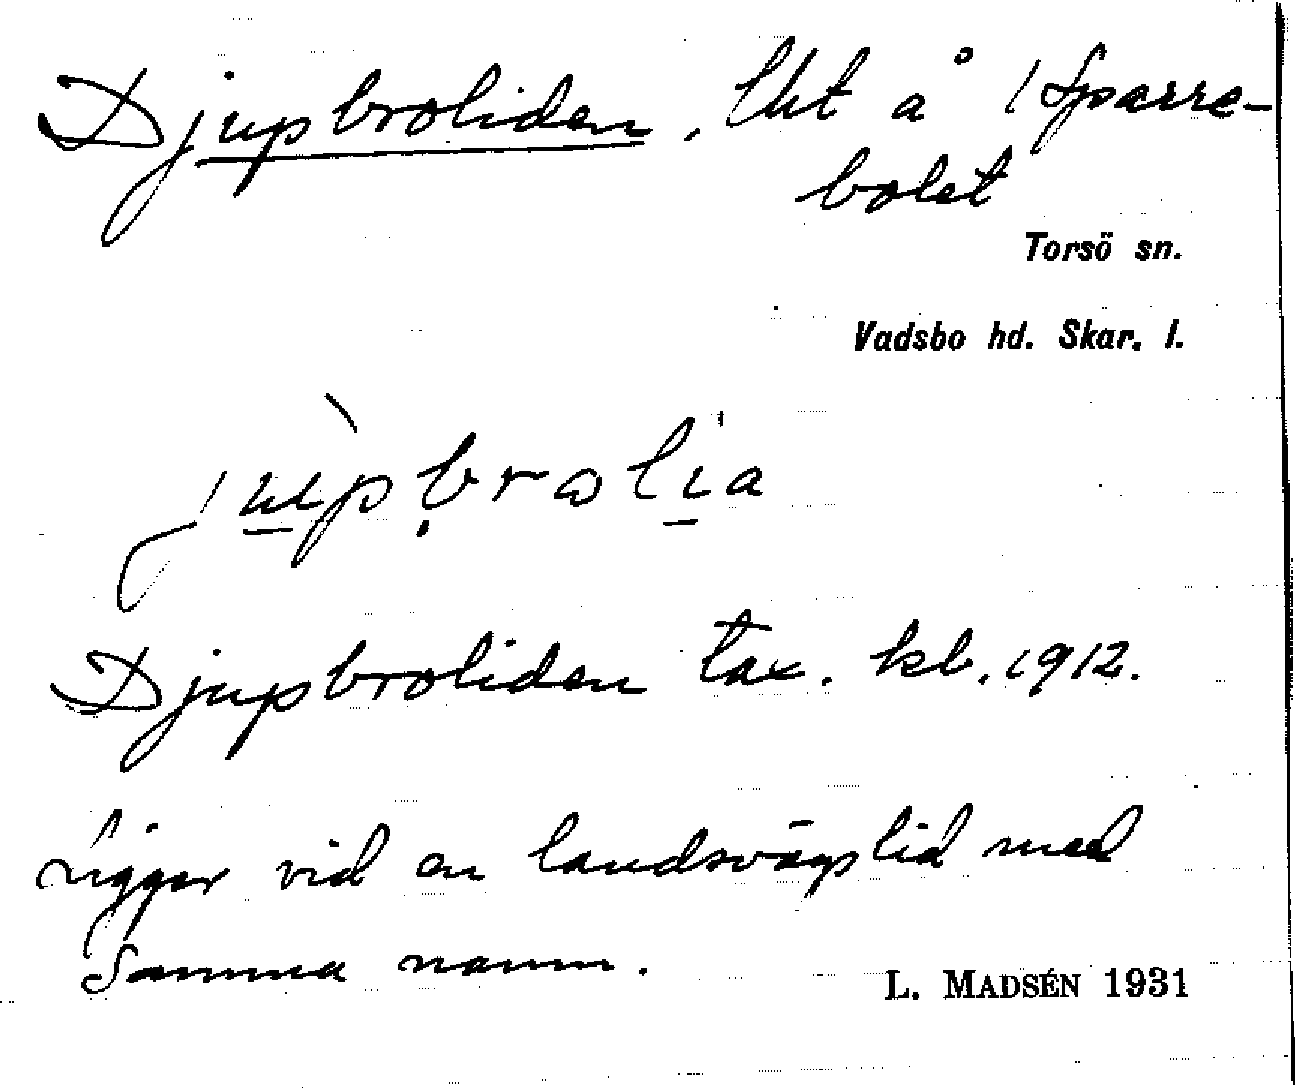 Djupbroliden, lht å 1 Sparre-
bolet
Torsö sn.
Vadsbo hd. Skar. l.
Djupbroliden tax. kb. 1912.
Ligger vid en landsvägslid med
samma namn.
L. MADSÉN 1931